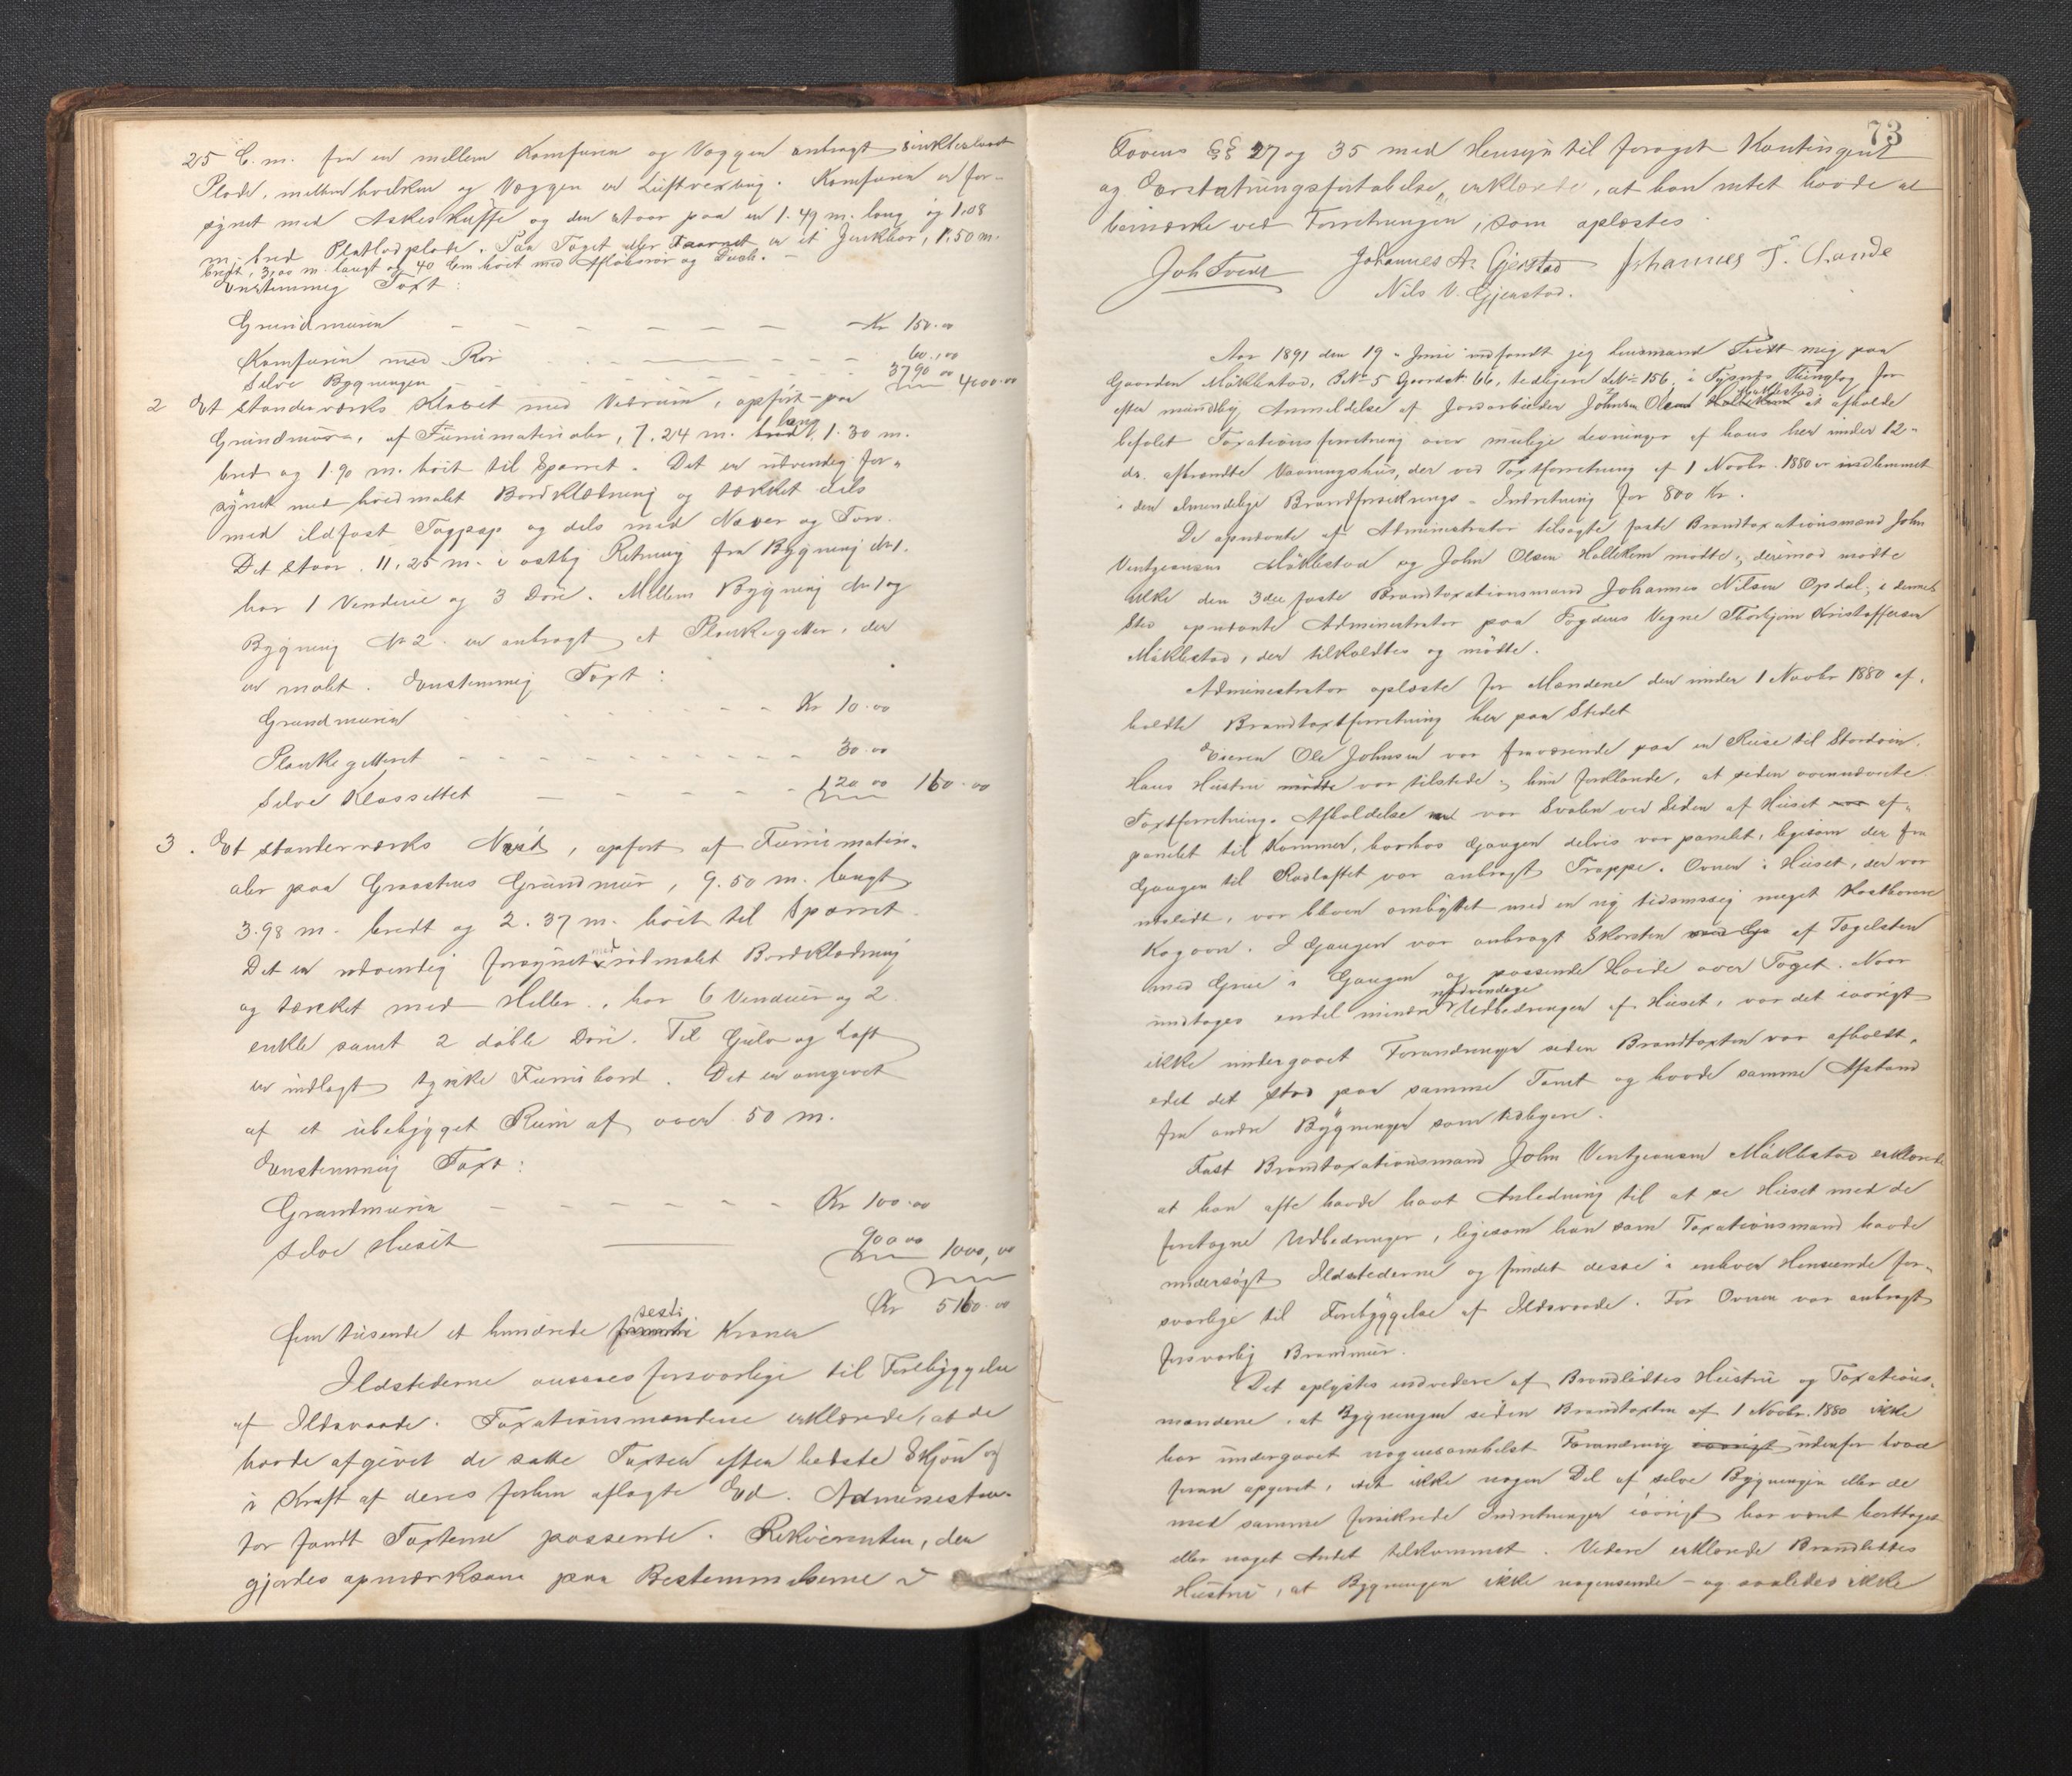 25 C.m. fra en mellem Komfuren og Væggen anbragt
Plade, mellem hvilken og Væggen er Luftvexling. Komfuren er for-
synet med Askeskuffe og den staar paa en 1.49 m. lang og 1.08
m. bred Plade. Paa Taget eller Taarnet er et Jernkar, 1,50 m.
bredt, 3,00 m. langt og 40 Cm høit med Afløbsrør og
Enstemmig Taxt:
Grundmuren - - - - - - - Kr 150.00
Komfuren med Rør - - - - 60.00
Selve Bygningen - - - - 3790 00 4000.00
2 Et standerværks Kloset med Vedrum, opført paa
Grundmure, af Furumaterialer, 7.24 m. lang, 1.30 m.
bred og 1.90 m. høit til Sparret. Det er udvendig for-
synet med hvidmalet Bordklædning og tækket dels
med ildfast Tagpap og dels med Næver og Torv.
Det staar 11,25 m. i østlig Retning fra Bygning No 1.
har 1 Vindue og 3 Døre. Mellem Bygning No 1 og
Bygning No 2 er anbragt et Plankegitter, der
er malet. Enstemmig Taxt:
Grundmuren - - - - Kr 10.00
Plankegitteret - - - - 30.00
Selve Klosettet - - - - 120 00 160.00
3. Et standerværks Nøst, opført af Furumateri-
aler paa Graastens Grundmur, 9.50 m. langt,
3.98 m. bredt og 2.37 m. høit til Sparret.
Det er udvendig forsynet med rødmalet Bordklædning
og tækket med Heller, har 6 Vinduer og 2
enkle samt 2 doble Døre. Til Gulv og Loft
er indlagt tykke Furubord. Det er omgivet
af et ubebygget Rum af over 50 m.
Enstemmig Taxt:
Grundmuren - - - - - Kr 100.00
Selve Huset 900 00 1000,00
Kr 5160.00
fem tusende et hundrede sexti Kroner
Ildstederne ansees forsvarlige til Forebyggelse
af Ildsvaade. Taxationsmændene erklærede, at de
havde afgivet de satte Taxter efter bedste Skjøn og
i Kraft af deres forhen aflagte Ed. Administra-
tor fandt Taxterne passende. Rekvirenten, der
gjordes opmærksom paa Bestemmelserne i
73
Lovens §§ 27 og 35 med Hensyn til forøget Kontingent
og Erstatningsfortabelse, erklærede, at han intet havde at
bemærke ved Forretningen, som oplæstes.
Joh Tvedt Johannes A. Gjerstad Johannes T.
Nils V. Gjerstad.
Aar 1891 den 19 Juni indfandt jeg Lensmand Tvedt mig paa
Gaarden Mükkestad, B.No 5 Gaardsn. 66, tidligere L.No 156 i Tysnes Thinglag for
efter mundtlig Anmeldelse af Jordarbeider Johnsen at afholde
befalet Taxationsforretning over mulige Levninger af hans her under 12-
ds. afbrændte Vaaningshus, der ved Taxtforretning af 1 Novbr. 1880 er indlemmet
i den almindelige Brandforsikrings-Indretning for 800 Kr.
De opnævnte af Administrator tilsagte faste Brandtaxationsmænd John
Ventzensen og John Olsen Hallekim mødte; derimod mødte
ikke den 3die faste Brandtaxationsmand Johannes Nilsen Opdal; i dennes
Sted opnævnte Administrator paa Fogdens Vegne Thorbjørn Kristoffersen
, der tilkaldtes og mødte.
Administrator oplæste for Mændene den under 1 Novbr 1880 af-
holdte Brandtaxtforretning her paa Stedet
Eieren Ole Johnsen var fraværende paa en Reise til Stordøen.
Hans Hustru var tilstede; hun forklarede, at siden ovennævnte
Taxtforretnings Afholdelse var Svalen ved Siden af Huset af-
panelet til Kammer, hvorhos Gangen delvis var panelet, ligesom der fra
Gangen til Rødloftet var anbragt Trappe. Ovnen i Huset, der var
udslidt, var bleven ombyttet med en ny tidsmæssig meget kostbarere
Kogeovn. I Gangen var anbragt Skorsten af Teglsten
med Grue i Gangen og passende Høide over Taget. Naar
undtages endel mindre nødvendige Udbedringer af Huset, var det iøvrigt
ikke undergaaet Forandringer siden Brandtaxten var afholdt,
idet det stod paa samme Tomt og havde samme Afstand
fra andre Bygninger som tidligere.
Fast Brandtaxationsmand John Ventzensen erklærede
at han ofte havde havt Anledning til at se Huset med de
foretagne Udbedringer, ligesom han som Taxationsmand havde
undersøgt Ildstederne og fundet desse i enhver Henseende for-
svarlige til Forebyggelse af Ildsvaade. For Ovnen var anbragt
forsvarlig Brandmur.
Det oplystes endvidere af Brandlidtes Hustru og Taxations-
mændene, at Bygningen siden Brandtaxten af 1 Novbr. 1880 ikke
har undergaaet nogensomhelst Forandring udenfor hvad
foran opgivet, idet ikke nogen Del af selve Bygningen eller de
med samme forsikrede Indretninger iøvrigt har været borttaget
eller noget Andet tilkommet. Videre erklærede Brandlidtes
Hustru, at Bygningen ikke nogensinde - og saaledes ikke